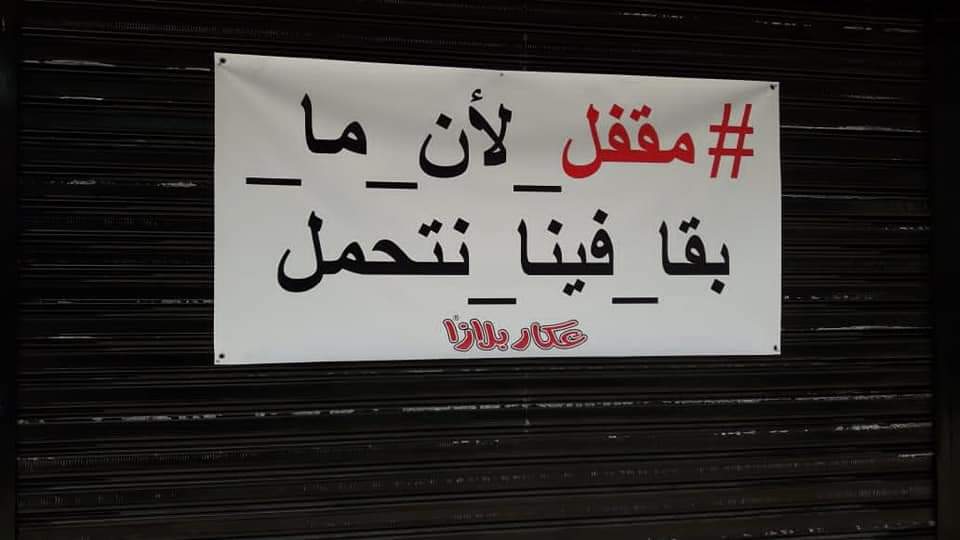 #مقفل_لأن_ما_
بقا_فينا_نتحمل
عكار بلازا